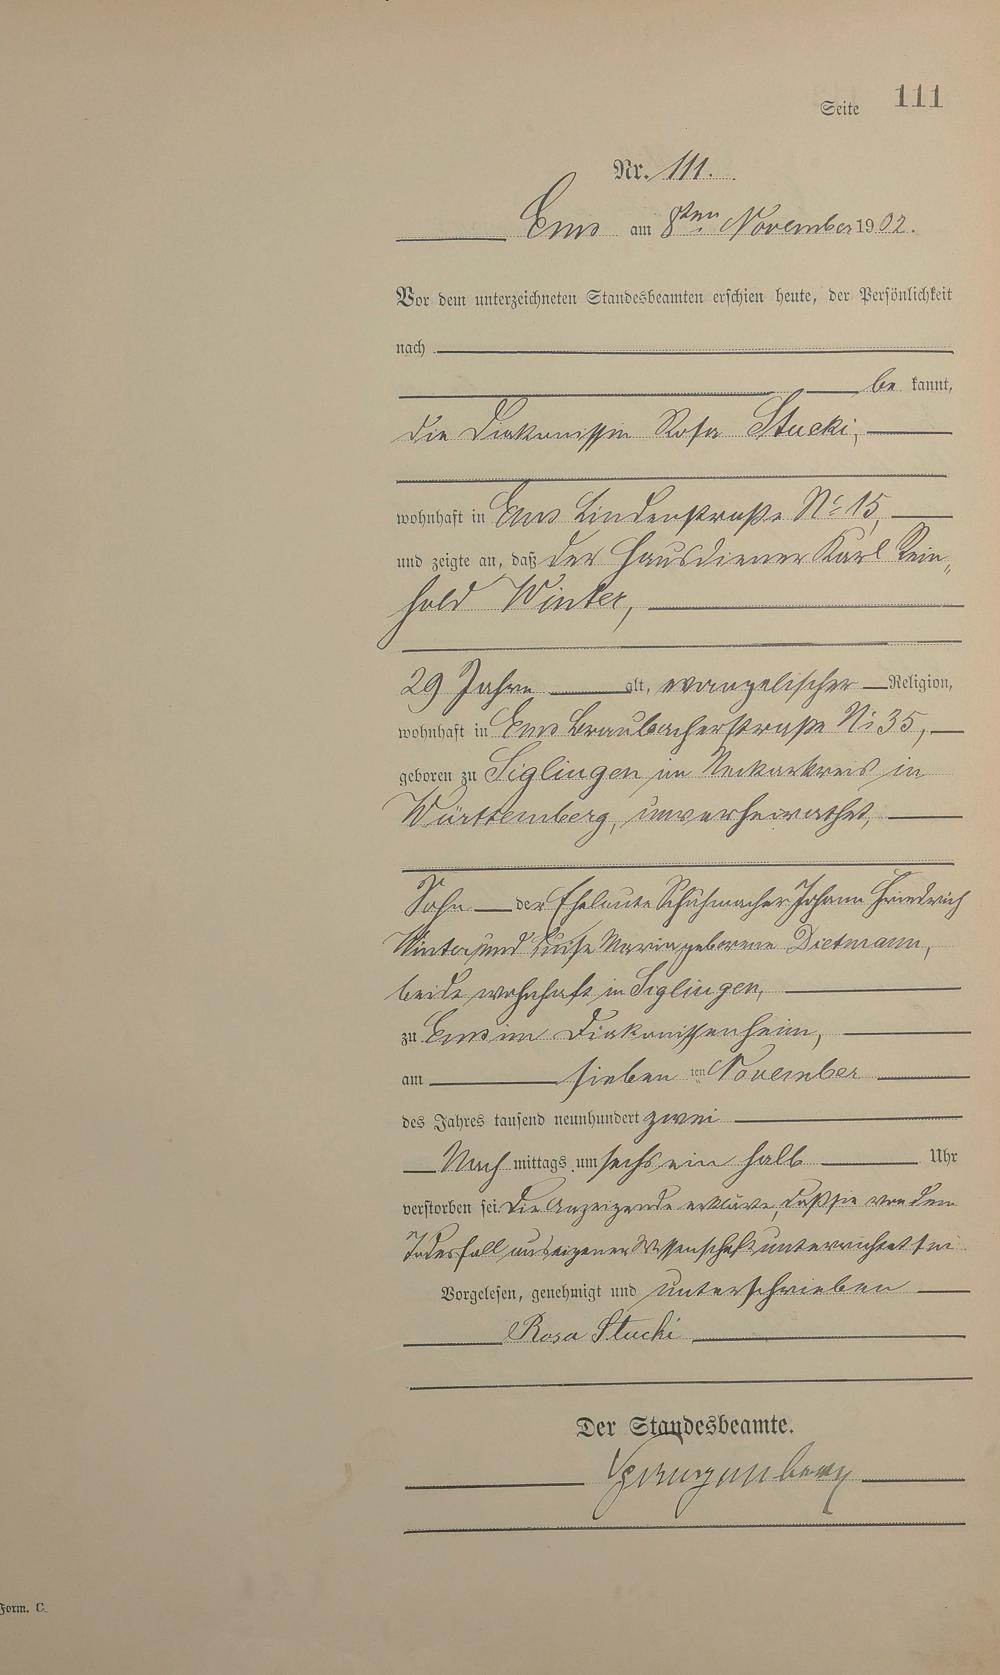 Seite 111
Nr. 111.
Ems am 8ten November 1902.
Vor dem unterzeichneten Standesbeamten erschien heute, der Persönlichkeit
nach
be kannt,
die Diakonissin Rosa Stucki,
wohnhaft in Ems Lindenstraße No 15,
und zeigte an, daß der Hausdiener Karl Rein„
hold Winter,
29 Jahre alt, evangelischer Religion,
wohnhaft in Ems Braubacherstraße No 35,
geboren zu Siglingen im Neckarkreis in
Württemberg, unverheirathet,
Sohn der Eheleute Schuhmacher Johann Friedrich
Winter und Luise Maria geborene Dietmann,
beide wohnhaft in Siglingen,
zu Ems im Diakonissenheim,
am sieben ten November
des Jahres tausend neunhundert zwei
Nach mittags um sechs ein halb Uhr
verstorben sei. Die Anzeigende erklärte, daß sie von dem
Todesfall aus eigener Wissenschaft unterrichtet sei.
Vorgelesen, genehmigt und unterschrieben
Rosa Stucki
Der Standesbeamte.
Form. C.